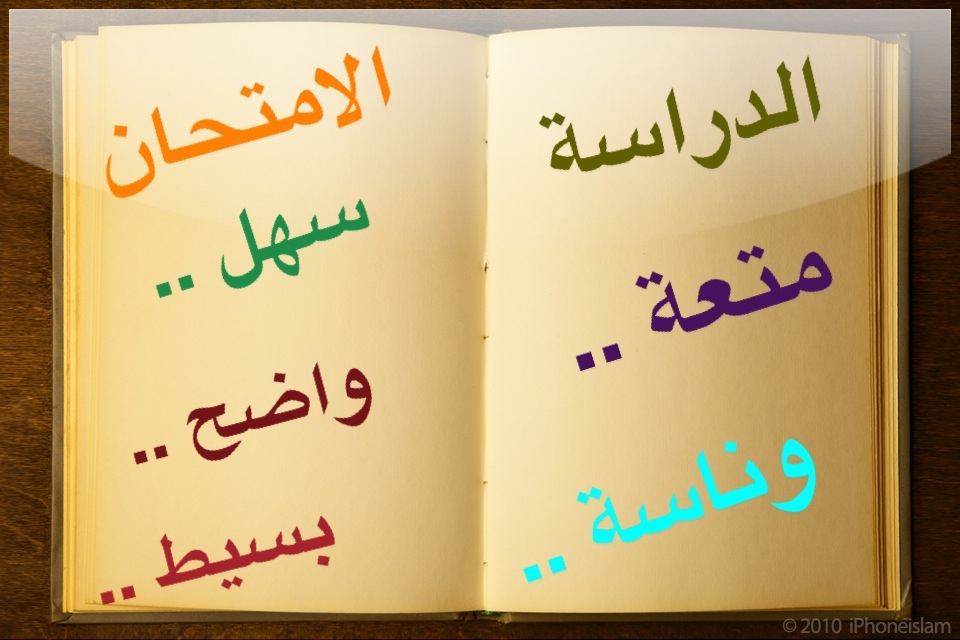 الدراسة
متعة ..
وناسة ..
الامتحان
سهل ..
واضح ..
بسيط ..
© 2010 iPhoneislam